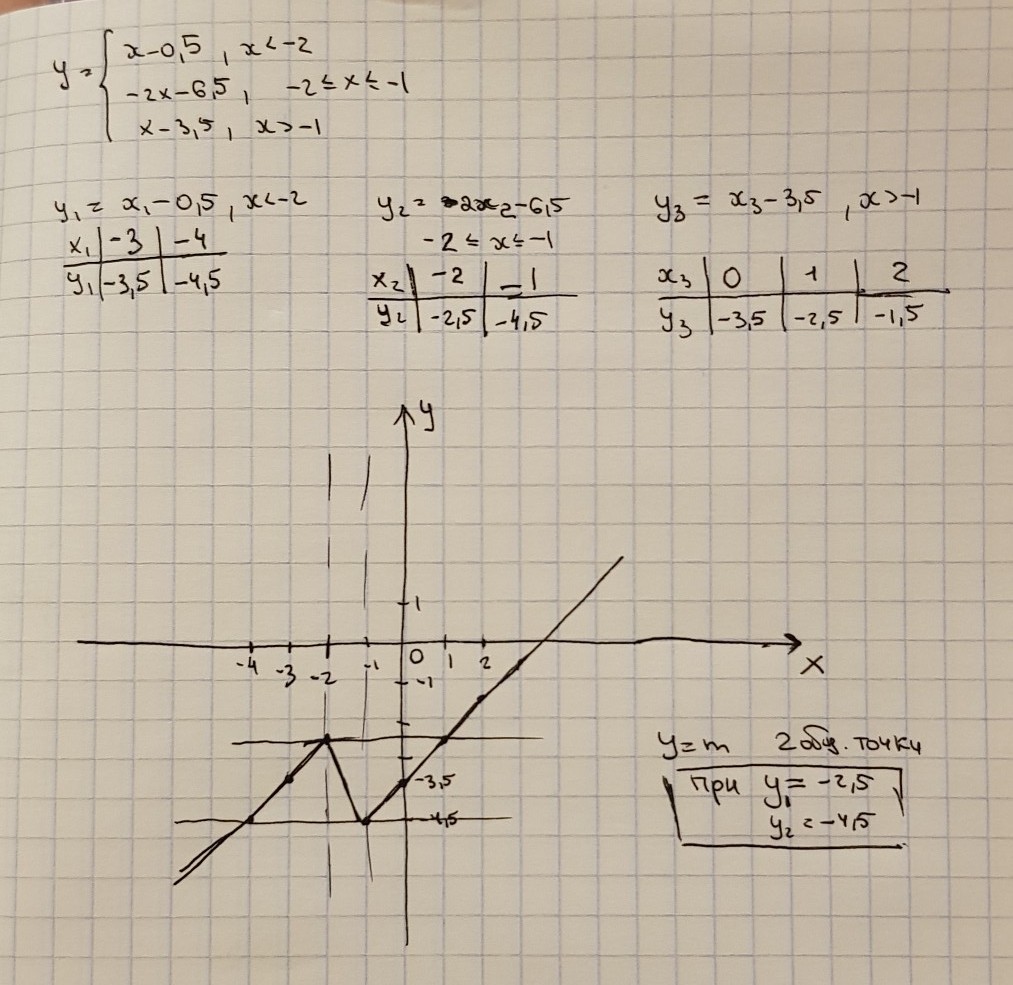 y = { x-0,5 , x<-2
-2x-6,5 , -2≤x≤-1
x-3,5 , x>-1
y₁ = x₁-0,5 , x<-2
x₁ | -3 | -4
y₁ | -3,5 | -4,5
y₂ = -2x₂-6,5
-2≤x≤-1
x₂ | -2 | -1
y₂ | -2,5 | -4,5
y₃ = x₃-3,5 , x>-1
x₃ | 0 | 1 | 2
y₃ | -3,5 | -2,5 | -1,5
y
1
-4 -3 -2 -1 0 1 2
x
-1
-3,5
-4,5
y=m 2 общ. точки
при y₁ = -2,5
y₂ = -4,5